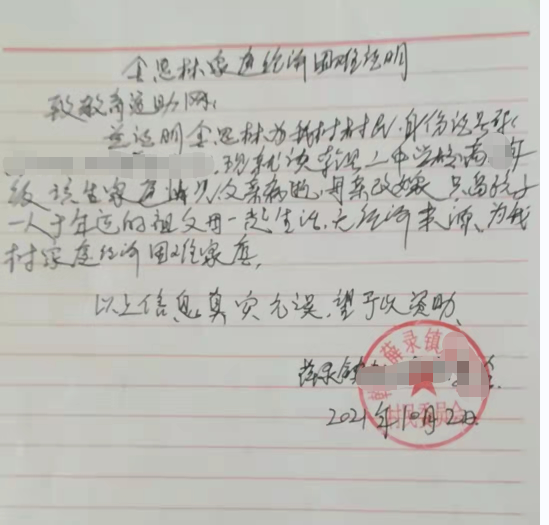 金思林家庭经济困难证明
致教育适助网:
兹证明金思林为我村村民,身份证号
现就读乾县二中学校高 年
级该生家庭情况父亲病逝,母亲改嫁只落孩子
一人于年迈的祖父母一起生活,无经济来源,为我
村家庭经济困难家庭。
以上信息真实无误,望予以资助。
薛录镇
2021年10月2日
薛录镇
村民委员会